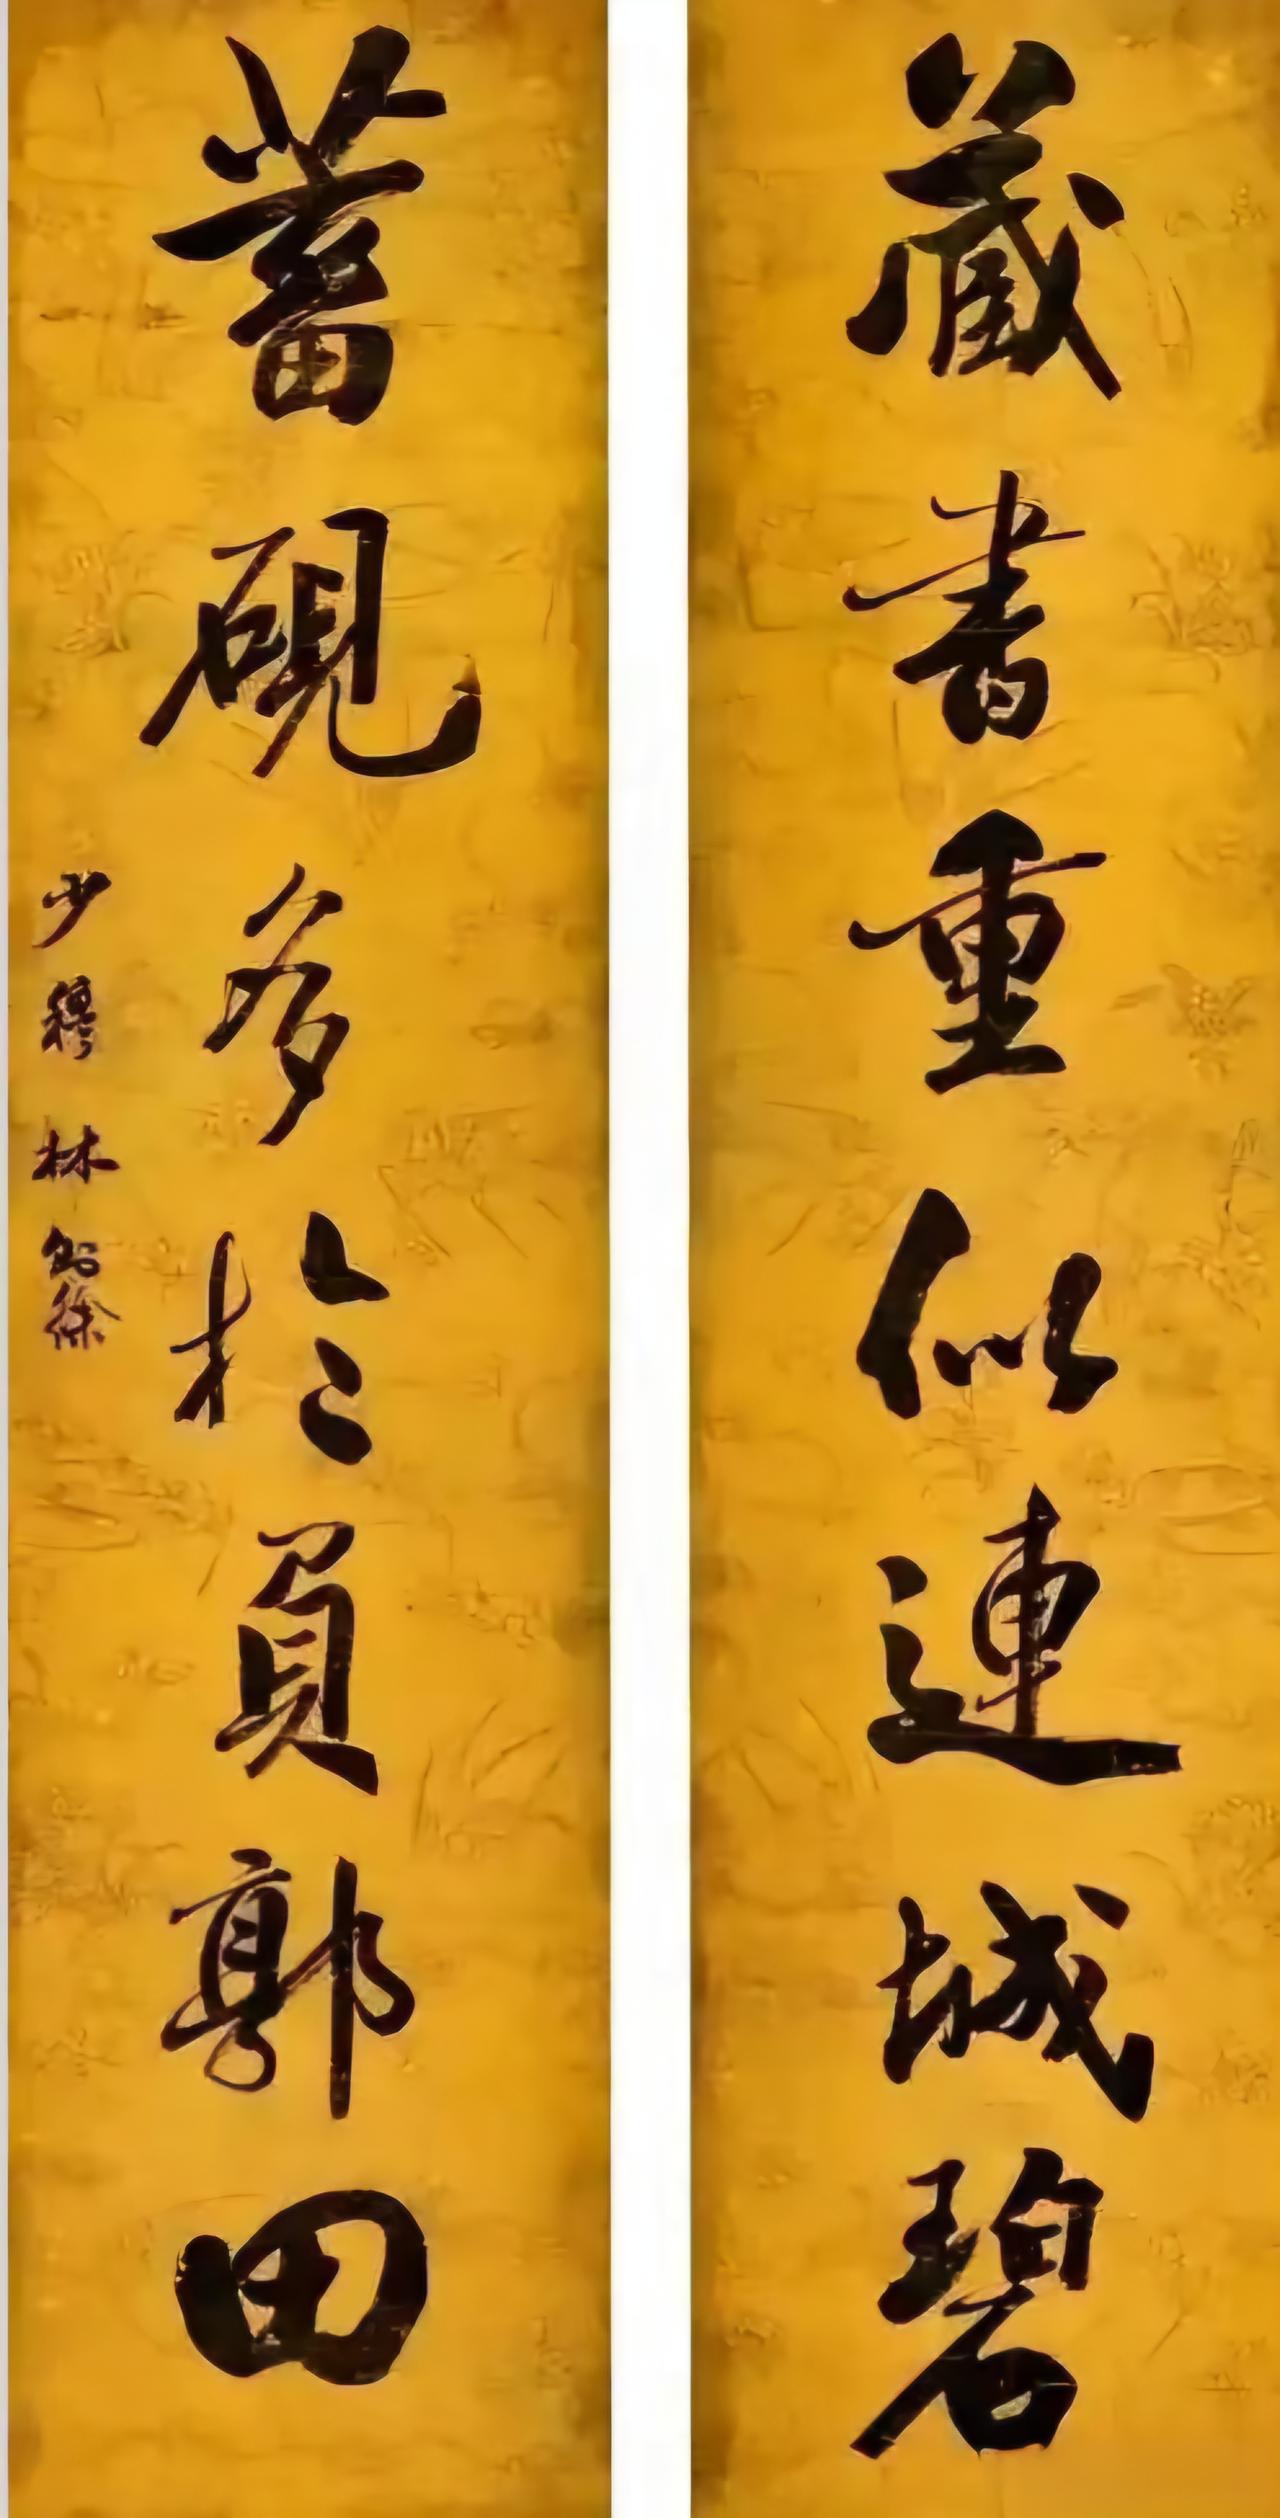 藏書重似連城碧
蓄硯多於負郭田
少穆林則徐